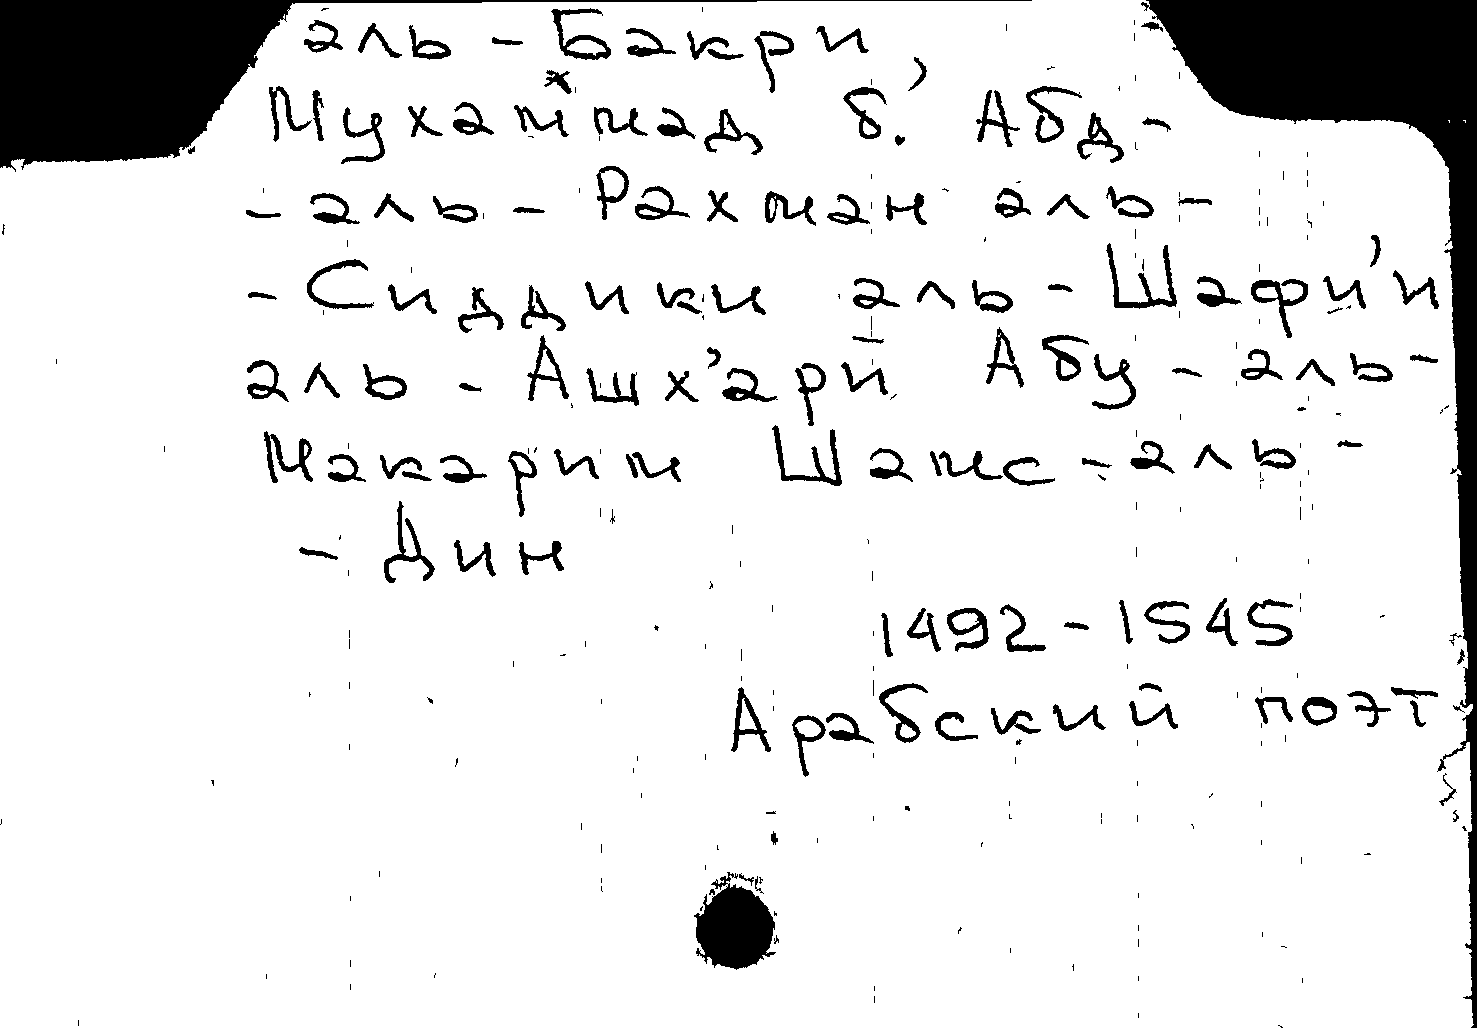 аль - Бакри,
Мухаммад б. Абд-
- аль - Рахман аль-
- Сиддики аль - Шафи'и
аль - Ашх'ари Абу - аль-
Макарим Шамс - аль -
- Дин
1492 - 1545
Арабский поэт